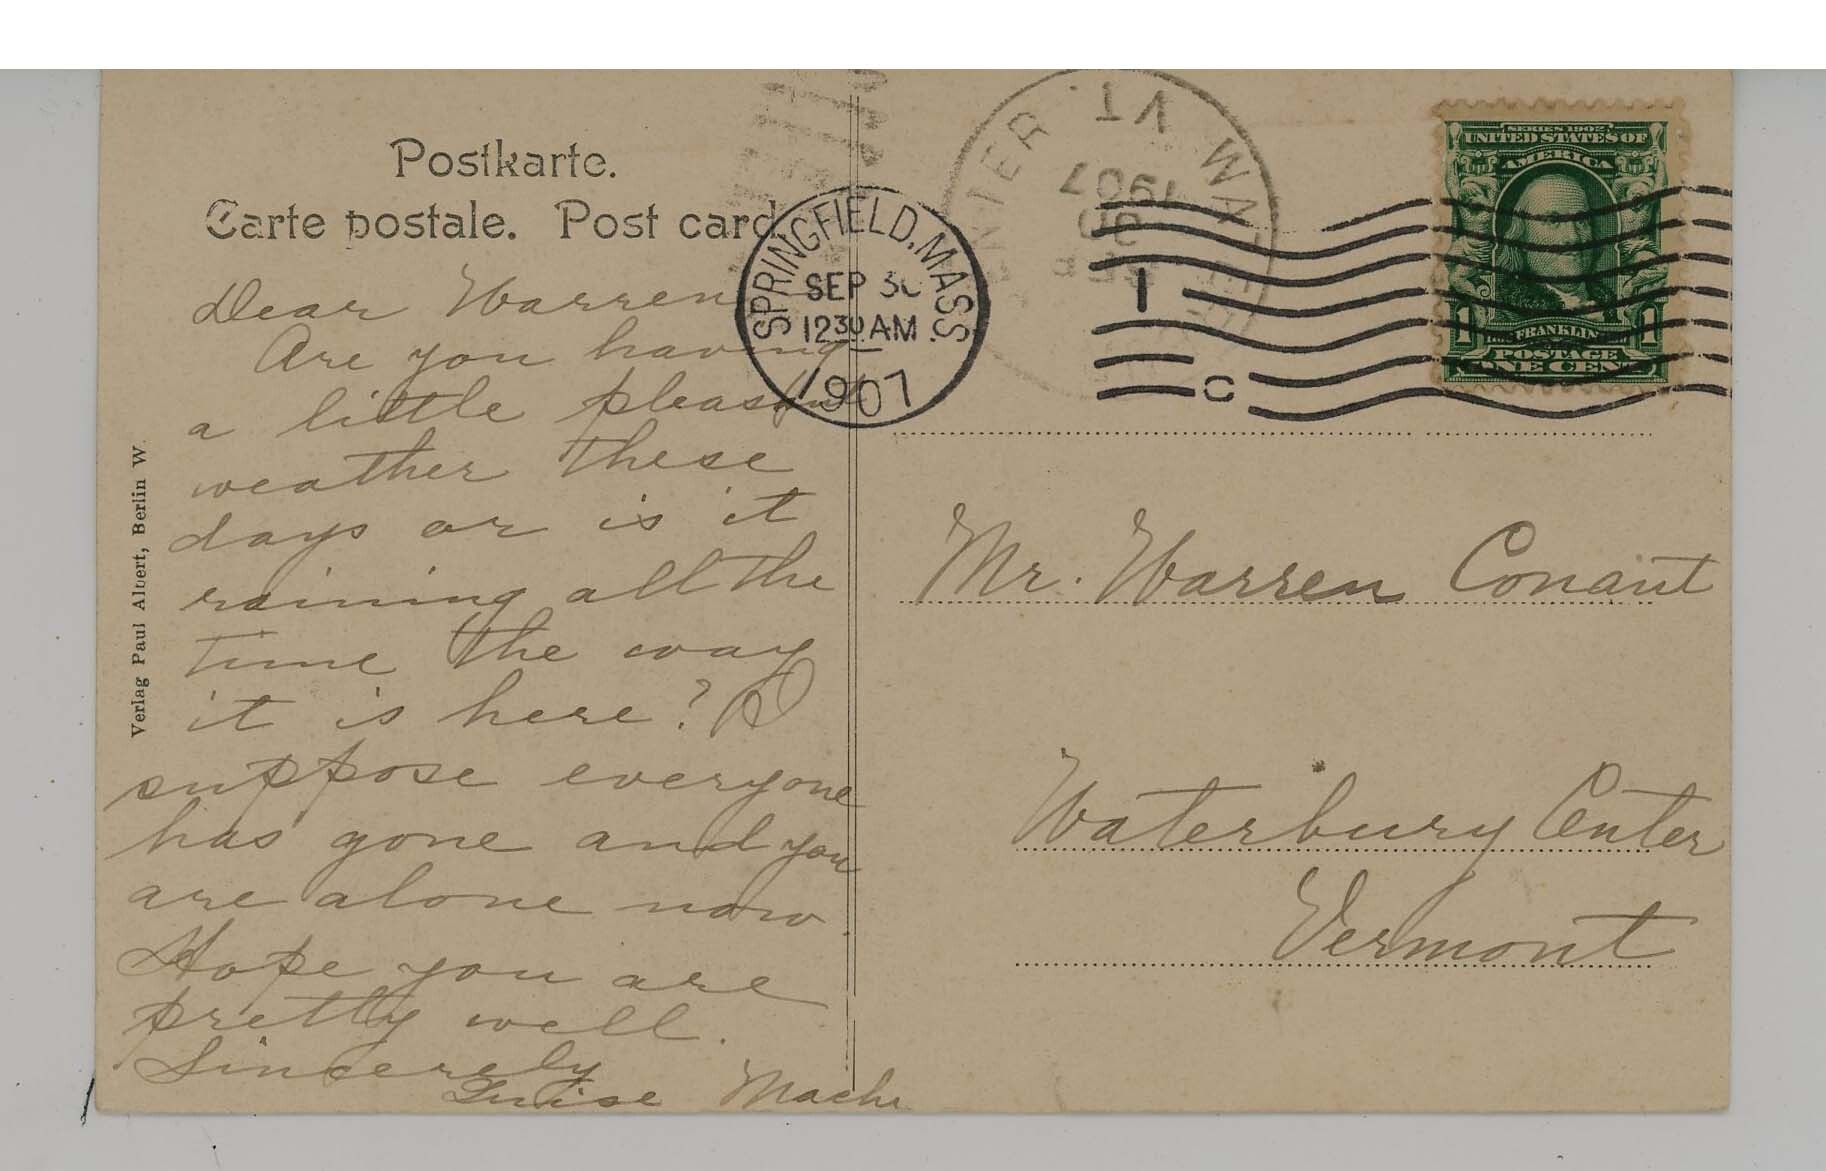 Postkarte.
Carte postale. Post card
Dear Warren
Are you having
a little pleasant
weather these
days or is it
raining all the
time the way
it is here? I
suppose everyone
has gone and you
are alone now.
Hope you are
pretty well.
Sincerely
Luise
Verlag Paul Albert, Berlin W.
SPRINGFIELD, MASS.
SEP 30
12 30 AM
1907
VT
1907
1
C
SERIES 1902
UNITED STATES OF
AMERICA
FRANKLIN
1 POSTAGE 1
ONE CENT
Mr. Warren Conant
Waterbury Center
Vermont